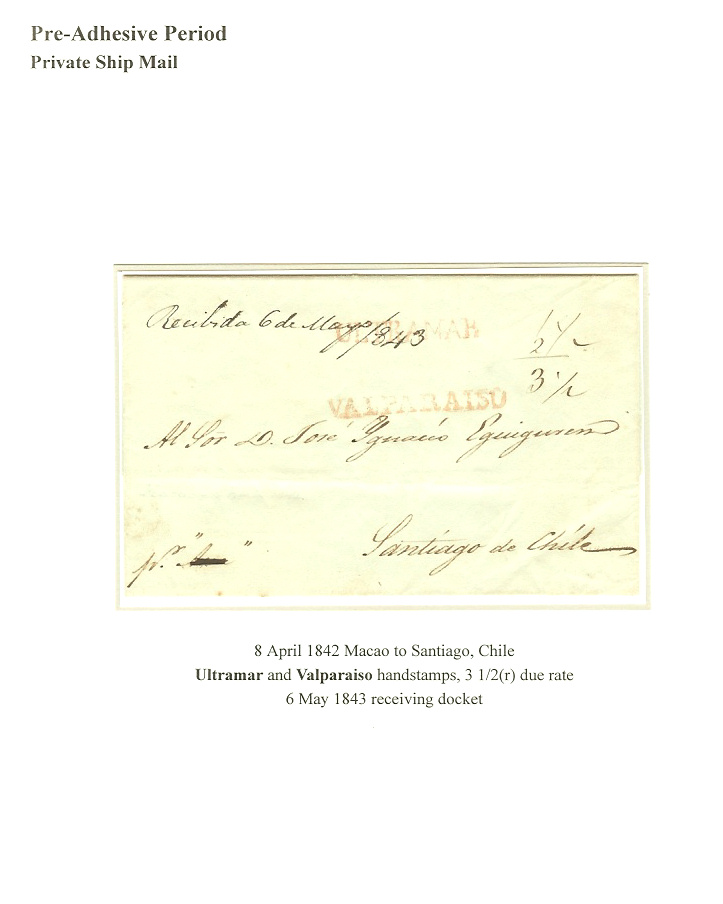 Pre-Adhesive Period
Private Ship Mail
Recibida 6 de Mayo/1843
ULTRAMAR
3 1/2
VALPARAISO
Al Sor D. José Ygnacio Eguiguren
Santiago de Chile
pr. " "
8 April 1842 Macao to Santiago, Chile
Ultramar and Valparaiso handstamps, 3 1/2(r) due rate
6 May 1843 receiving docket